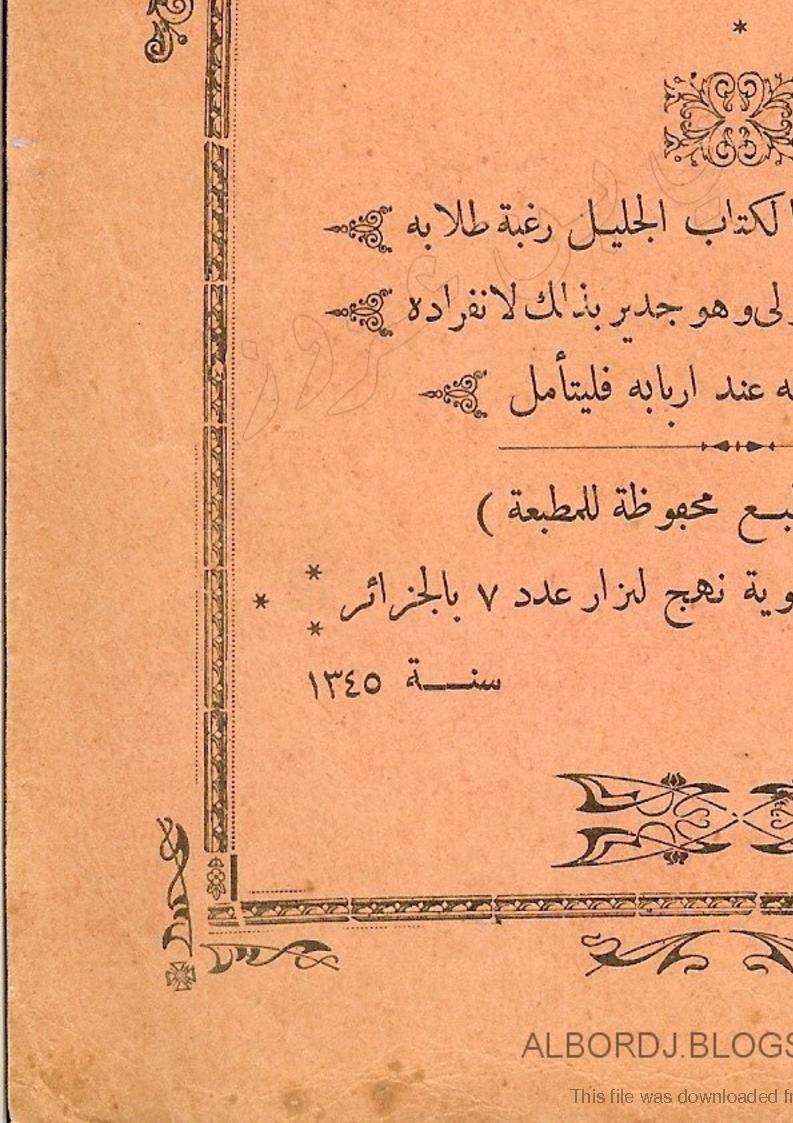 لكتاب الجليل رغبة طلابه
ولى وهو جدير بذلك لانفراده
عند اربابه فليتأمل
محفوظة للمطبعة )
نهج لنزار عدد ٧ بالجزائر
سنة ١٣٤٥
ALBORDJ.BLOGS
This file was downloaded fr